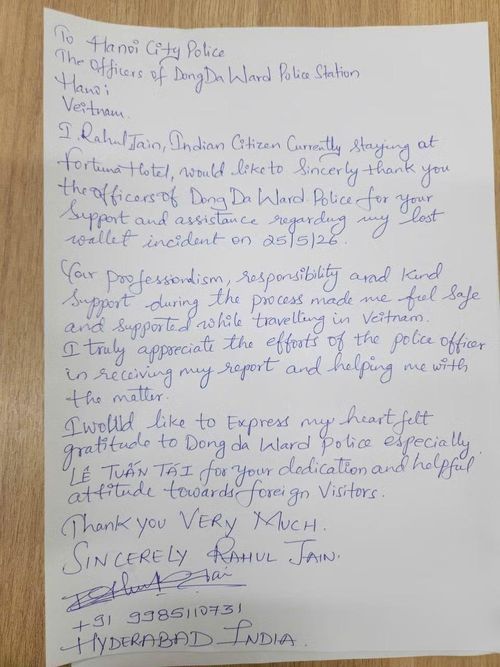 To Hanoi City Police
The Officers of DongDa Ward Police Station
Hanoi
Veitnam.
I, Rahul Jain, Indian Citizen Currently staying at
Fortuna Hotel, would like to Sincerly thank you
the officers of Dong Da Ward Police for your
Support and assistance regarding my lost
wallet incident on 25/5/26.
Your professionlism, responsibility and kind
support during the process made me feel safe
and supported while travelling in Veitnam.
I truly appreciate the efforts of the police officer
in receiving my report and helping me with
the matter.
I would like to Express my heart felt
gratitude to Dong da Ward Police especially
LÊ TUẤN TÁI for your dedication and helpful
attitude towards foreign Visitors.
Thank you VERY MUCH.
SINCERELY RAHUL JAIN.
+91 9985110731
HYDERABAD INDIA.